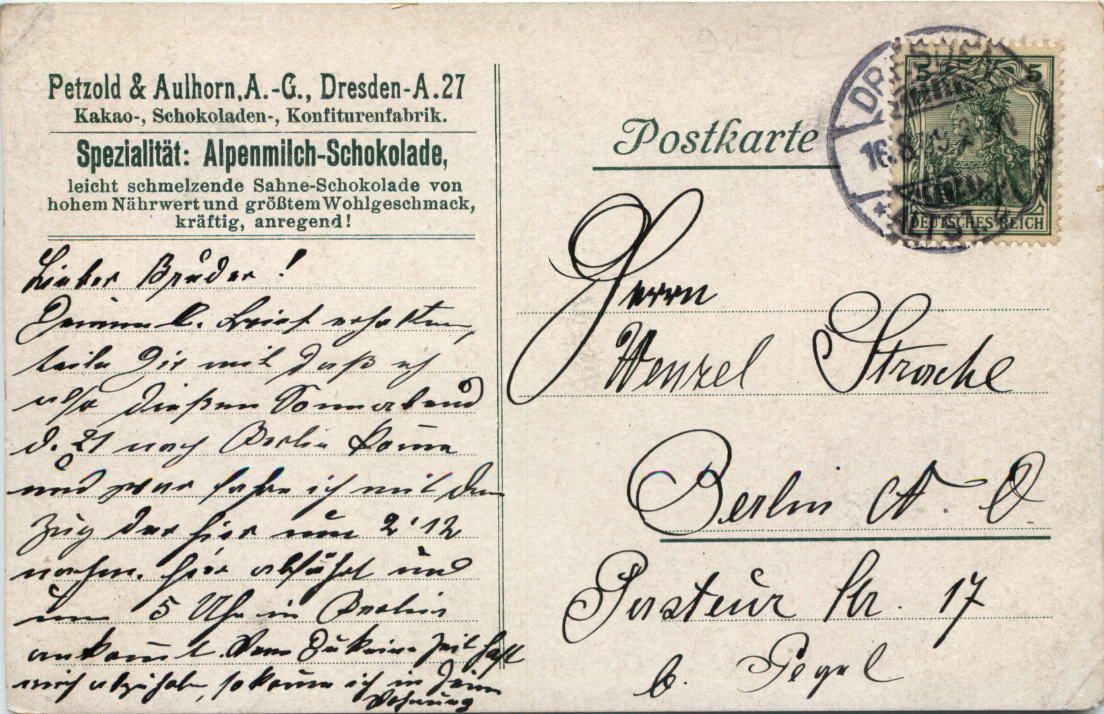 Petzold & Aulhorn, A.-G., Dresden-A. 27
Kakao-, Schokoladen-, Konfiturenfabrik.
Spezialität: Alpenmilch-Schokolade,
leicht schmelzende Sahne-Schokolade von
hohem Nährwert und größtem Wohlgeschmack,
kräftig, anregend!
Lieber Bruder!
Deinen l. Brief erhalten,
teile Dir mit daß ich
also dießen Sonnabend
d. 21 nach Berlin komme
und zwar fahre ich mit dem
Zug der hier um 2'12
nachm. hier abfährt und
um 5 Uhr in Berlin
ankommt. Wenn Du keine Zeit hast
mich abzuholen, so komme ich in Deine
Wohnung
Postkarte
DRESDEN
16.8.
5 5
DEUTSCHES REICH
Herrn
Wenzel
Berlin N. O.
Pasteur Str. 17
b.